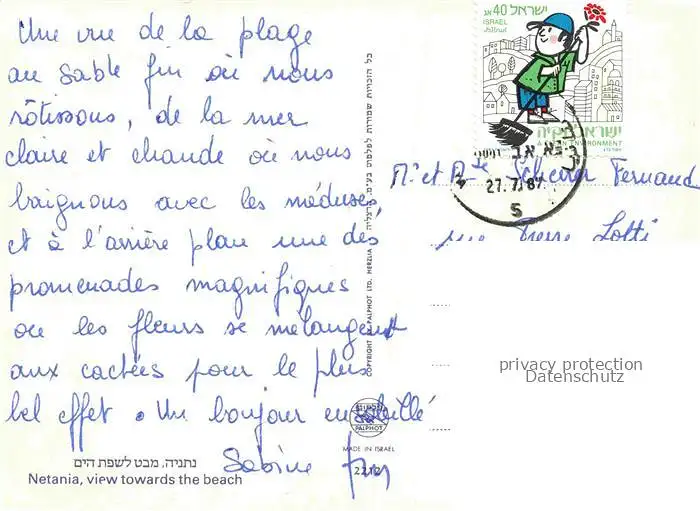 Une vue de la plage
au sable fin où nous
rôtissons, de la mer
claire et chaude où nous
baignons avec les méduses,
et à l'arrière plan une des
promenades magnifiques
où les fleurs se mélangent
aux cactées pour le plus
bel effet. Un bonjour ensoleillé
Sabine
נתניה, מבט לשפת הים
Netania, view towards the beach
COPYRIGHT BY PALPHOT LTD. HERZLIA
פלפוט
PALPHOT
MADE IN ISRAEL
2212
ישראל 40 אג
ISRAEL
ENVIRONMENT
27.7.87
5
Mr et Mme Scheirer Fernand
rue Pierre Lotti
privacy protection
Datenschutz